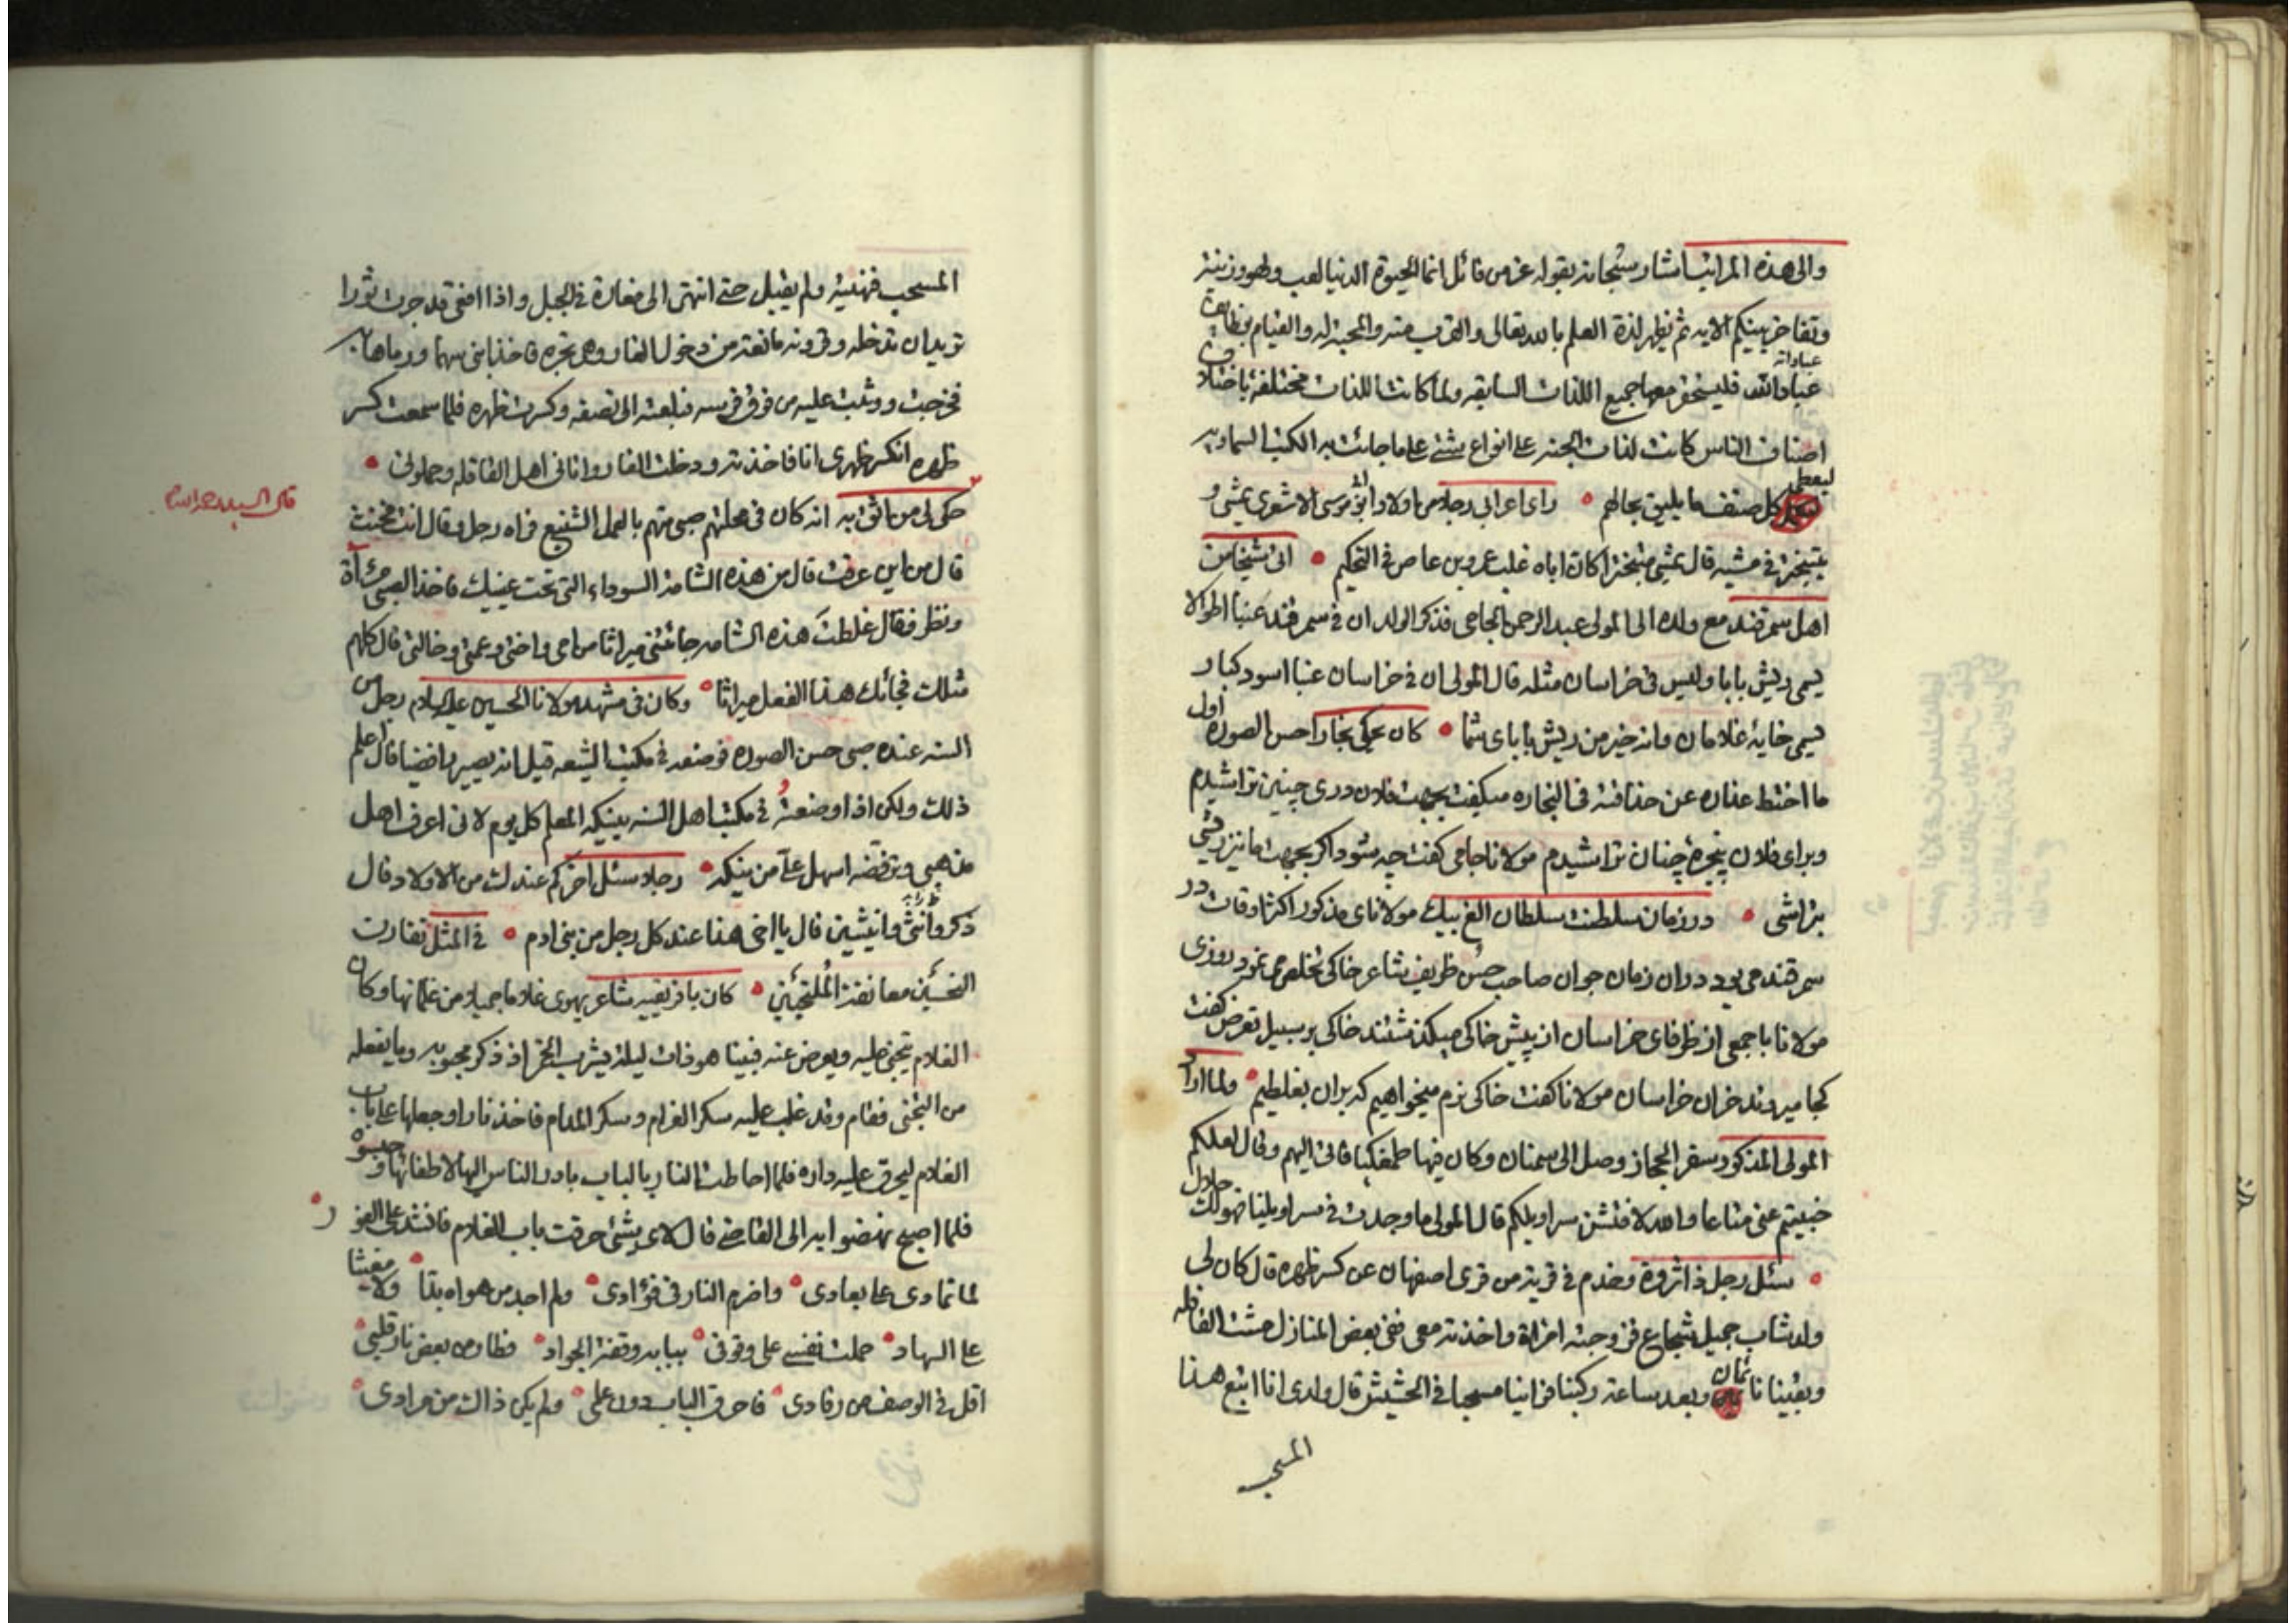 والى هذه المراتب اشار سبحانه بقوله عز من قائل انما الحيوة الدنيا لعب ولهو وزينة
وتفاخر بينكم الايه ثم يظهر لذة العلم بالله تعالى والقرب منه والمحبة له والقيام بوظايف
عباداته
عبادالله فليستحقر معها جميع اللذات السابقه ولما كانت اللذات مختلفة باختلاف
اصناف الناس كانت لذات الجنة على انواع شتى على ما جائت به الكتب السماويه
ليعطى
كل صنف ما يليق بحالهم راى اعرابى رجلا من اولاد ابى موسى الاشعرى يمشى و
يتبختر فى مشيه قال يمشى متبخترا كان اباه غلب عمرو بن عاص فى التحكيم اتى شيخا من
اهل سمرقند مع ولده الى المولى عبد الرحمن الجامى فذكر الولد ان فى سمرقند عنبا اطولا
يسمى ريش بابا وليس فى خراسان مثله قال المولى ان فى خراسان عنبا اسود كبار
يسمى خايۀ غلامان وانه خير من ريش باباى شما كان يحكى نجارا حسن الصورة اول
ما اختط عذاره عن حذاقته فى النجاره ميكفت بجهت فلان درى چنين تراشيدم
وبراى فلان پنجرۀ چنان تراشيدم مولانا جامى كفت چه شود اكر بجهت ما نيز ريشى
بتراشى در زمان سلطنت سلطان الغ بيك مولاناى مذكور اكثر اوقات در
سمرقند مى بود در ان زمان جوان صاحب حسن ظريف شاعر خاكى تخلص مى نمود روزى
مولانا با جمعى از ظرفاى خراسان از پيش خاكى ميكذشتند خاكى بر سبيل تعرض كفت
كجا ميروند خران خراسان مولانا كفت خاكى نرم ميخواهيم كه بران بغلطيم ولما اراد
المولى المذكور سفر الحجاز وصل الى سمنان وكان فيها فاتى اليهم وقال لعلكم
خبيتم عنى متاعا والله لافتش سراويلكم قال المولى ما وجدت فى سراويلنا فهو لك حلال
سئل رجل ذا ثروة وخدم فى قرية من قرى اصفهان عن كسر ظهره قال كان لى
ولد شاب جميل شجاع فزوجته امراة واخذته معى ففى بعض المنازل مشت القافله
وبقينا نائمان وبعد ساعة ركبنا فراينا مسحبا فى الحشيش قال ولدى انا اتبع هذا
المسحب
المسحب فنهيته ولم يقبل حتى انتهى الى مغارة فى الجبل واذا افعى قد جرت ثورا
تريد ان تدخله وقرونه مانعته من دخول الغار وهى تجره فاخذ ابنى سهما ورماها به
فخرجت ووثبت عليه من فوق فرسه فبلعته الى نصفه وكسرت ظهره فلما سمعت كسر
ظهره انكسر ظهرى انا فاخذته ودخلت الغار واتانى اهل القافله وحملونى
قال السيد رحمه الله
حكى لى من اثق به انه كان فى محلتهم صبى متهم بالعمل الشنيع فراه رجل وقال انت مخنث
قال من اين عرفت قال من هذه الشامة السوداء التى تحت عينيك فاخذ الصبى مرآة
ونظر فقال غلطت هذه الشامه جائتنى ميراثا من امى واختى وعمتى وخالتى قال كلهم
مثلك فجائك هذا الفعل ميراثا وكان فى مشهد مولانا الحسين عليه السلام رجل من
السنه عنده صبى حسن الصوره فوضعه فى مكتب الشيعه قيل انه يصير رافضيا قال اعلم
ذلك ولكن اذا وضعته فى مكتب اهل السنه ينيكه المعلم كل يوم لانى اعرف اهل
مذهبى وترفضه اسهل على من نيكه رجلا سئل اخر كم عندك من الاولاد قال
ذكر وانثى وانثيين قال يا اخى هذا عند كل رجل من بنى ادم فى المثل تقارت
معانقة الملتحيين كان بافريقيه شاعر يهوى غلاما جميلا من غلمانها وكان
الغلام يتجنى عليه ويعرض عنه فبينا هو ذات ليلة يشرب الخمر اذ ذكر محبوبه وما يفعله
من التجنى فقام وقد غلب عليه سكر الغرام وسكر المدام فاخذ نارا وجعلها على باب
الغلام ليحرق عليه داره فلما احاطت النار بالباب بادر الناس اليها لاطفائها و
فلما اصبح نهضوا به الى القاضى قال لاى شئ حرقت باب الغلام فانشد على الفور
لما تمادى على بعادى واضرم النار فى فؤادى ولم اجد من هواه بدا ولا مغيثا
على السهاد حملت نفسى على وقوفى ببابه وقفة الجواد فطار من بعض نار قلبى
اقل فى الوصف من رقادى فاحرق الباب دون علمى ولم يكن ذاك من مرادى